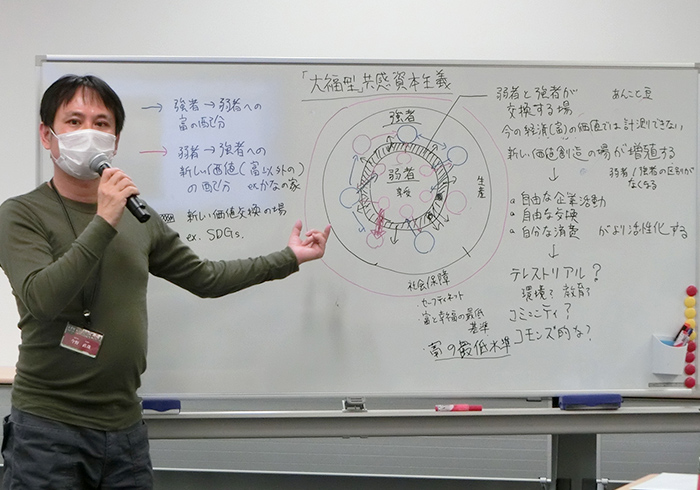 「大福型」共感資本主義
→ 強者→弱者への
富の配分
→ 弱者→強者への
新しい価値(富以外の)
の配分 ex.かなの家
新しい価値交換の場
ex. SDGs.
強者
弱者
生産
社会保障
・セーフティネット
・富と幸福の最低
基準
・富の最低水準
弱者と強者が
交換する場
あんこと豆
今の経済(富)の価値では計測できない
新しい価値創造の場が増殖する
弱者/強者の区別が
なくなる
自由な企業活動
自由な交換
自分な消費 がより活性化する
テレストリアル?
環境? 教育?
コミュニティ?
コモンズ的な?